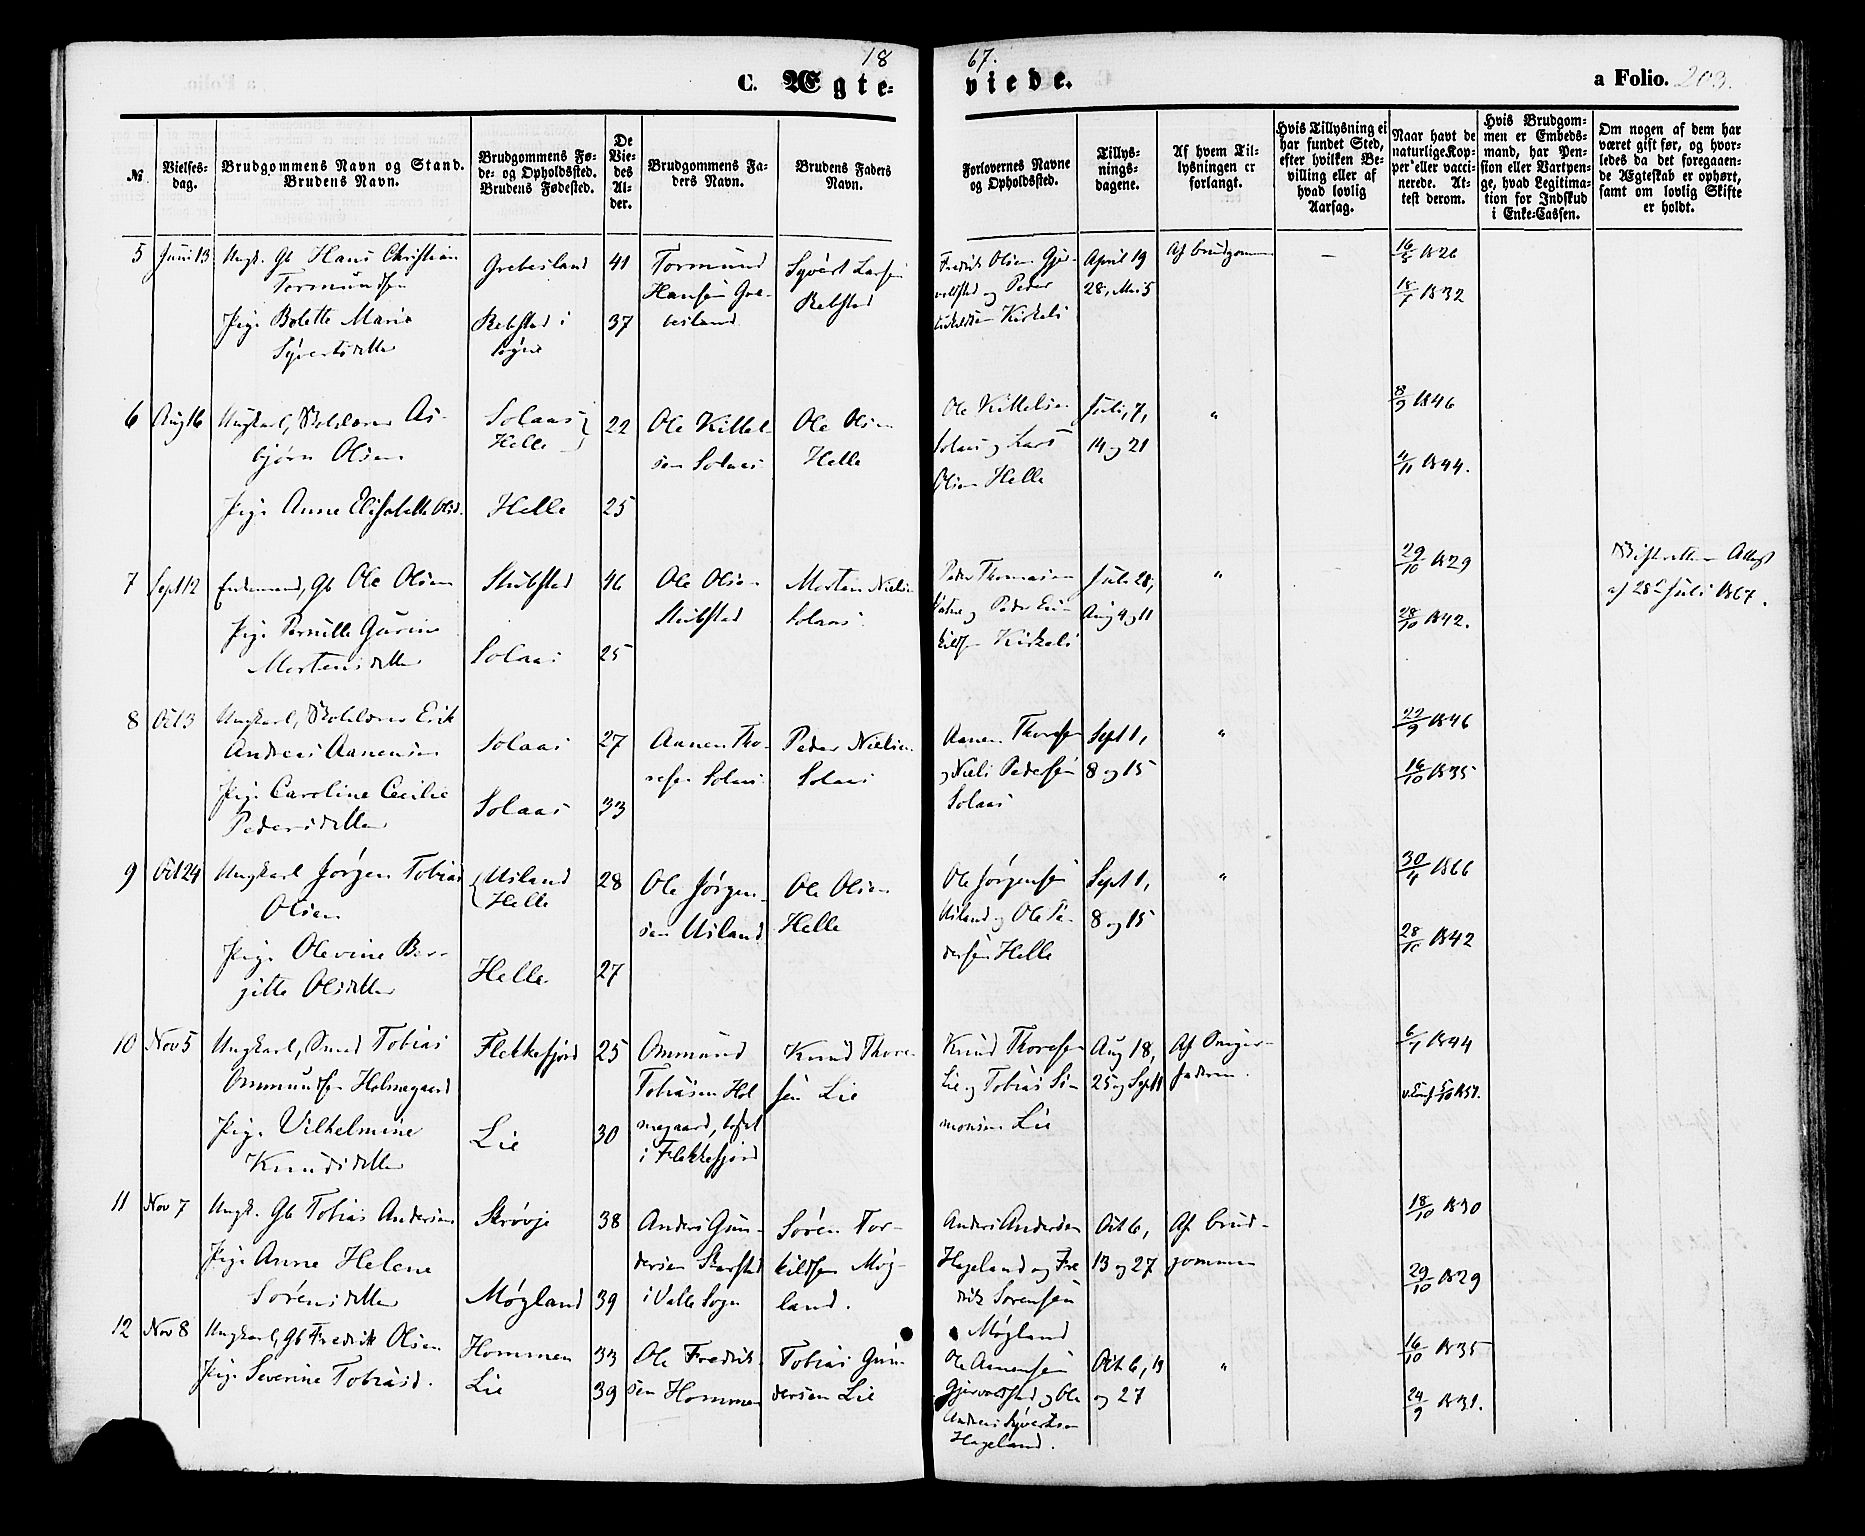 18 67.
C. Ægte- viede. a Folio. 203.
№
Vielses-
dag.
Brudgommens Navn og Stand.
Brudens Navn.
Brudgommens Fø-
de- og Opholdssted.
Brudens Fødested.
De
Vie-
des
Al-
der.
Brudgommens Fa-
ders Navn.
Brudens Faders
Navn.
Forlovernes Navne
og Opholdssted.
Tillys-
nings-
dagene.
Af hvem Til-
lysningen er
forlangt.
Hvis Tillysning ei
har fundet Sted,
efter hvilken Be-
villing eller af
hvad lovlig
Aarsag.
Naar havt de
naturlige Kop-
per eller vacci-
nerede. At-
test derom.
Hvis Brudgom-
men er Embeds-
mand, har Pen-
sion eller Vartpen-
ge, hvad Legitima-
tion for Indskud
i Enke-Cassen.
Om nogen af dem har
været gift før, og hvor-
ledes da det foregaaen-
de Ægteskab er opbørt,
samt om lovlig Skifte
er holdt.
5 Juni 13 Ungk. Gb Hans Christian
Tormundsen
Pige Bolette Maria
Syvertsdatter
Grebesland 41
Rebstad i 37
Søgne
Tormund
Hansen Gre-
besland
Syvert Larsen
Rebstad
Fredrik Olsen Gjer-
voldstad og Peder
Kirkeli
April 19
28, Mai 5
Af brudgommen
–
16/5 1826
18/1 1832
6 Aug 16 Ungkarl, Skolelærer As-
bjørn Olsen
Pige Anne Elisabeth Olsd.
Solaas
Helle 22
Helle 25
Ole Kittel-
sen Solaas
Ole Olsen
Helle
Ole Kittelsen
Solaas og Lars
Olsen Helle
Juli, 7,
14 og 21
"
8/9 1846
4/11 1844.
7 Sept 12 Enkemand, Gb Ole Olsen
Pige Pernille Gurine
Mortensdatter
Stubstad 46
Solaas 25
Ole Olsen
Stubstad
Morten Nielsen
Solaas.
Peder Thomasen
og Peder
Kirkeli
Juli 28,
Aug 4 og 11
"
29/10 1829
28/10 1842.
Skifteretten Attest
af 28de Juli 1867.
8 Oct 3 Ungkarl, Skolelærer Erik
Andreas Aanensen
Pige Caroline Cecilie
Pedersdatter
Solaas 27
Solaas 33
Aanen Tho-
resen Solaas
Peder Nielsen
Solaas
Aanen Thoresen
og Niels Pedersen
Solaas
Sept 1,
8 og 15
"
22/9 1846
16/10 1835
9 Oct 24 Ungkarl Jørgen Tobias
Olsen
Pige Olevine Ber-
gitte Olsdatter
Usland 28
Helle
Helle 27
Ole Jørgen-
sen Usland
Ole Olsen
Helle
Ole Jørgensen
Usland og Ole Pe-
dersen Helle
Sept 1,
8 og 15
"
30/4 1866
28/10 1842
10 Nov 5 Ungkarl, Smed Tobias
Ommundsen Holmegaard
Pige Vilhelmine
Knudsdatter
Flekkefjord 25
Lie 30
Ommund
Tobiasen Hol-
megaard, bosat
i Flekkefjord
Knud Thore-
sen Lie
Knud Thoresen
Lie og Tobias Si-
monsen Lie
Aug 18,
25 og Sept 1
Af Sviger-
faderen.
6/7 1844
11 Nov 7 Ungk. Gb Tobias Andersen
Pige Anne Helene
Sørensdatter
Skrøvje 38
Møgland 39
Anders Gun-
dersen Skarsted
i Valle Sogn
Søren Tor-
kildsen Møg-
land.
Anders Andersen
Hageland og Fre
drik Sørensen
Møgland
Oct 6,
13 og 27
Af brud-
gommen
18/10 1830
29/10 1829
12 Nov 8 Ungkarl, Gb Fredrik Olsen
Pige Severine Tobiasd.
Hommen 33
Lie 39
Ole Fredrik-
sen Hommen
Tobias Gun-
dersen Lie
Ole Aanensen
Gjervoldstad og Ole
Andreas Syvertsen
Hageland.
Oct 6, 13
og 27
"
16/10 1835
24/9 1831.